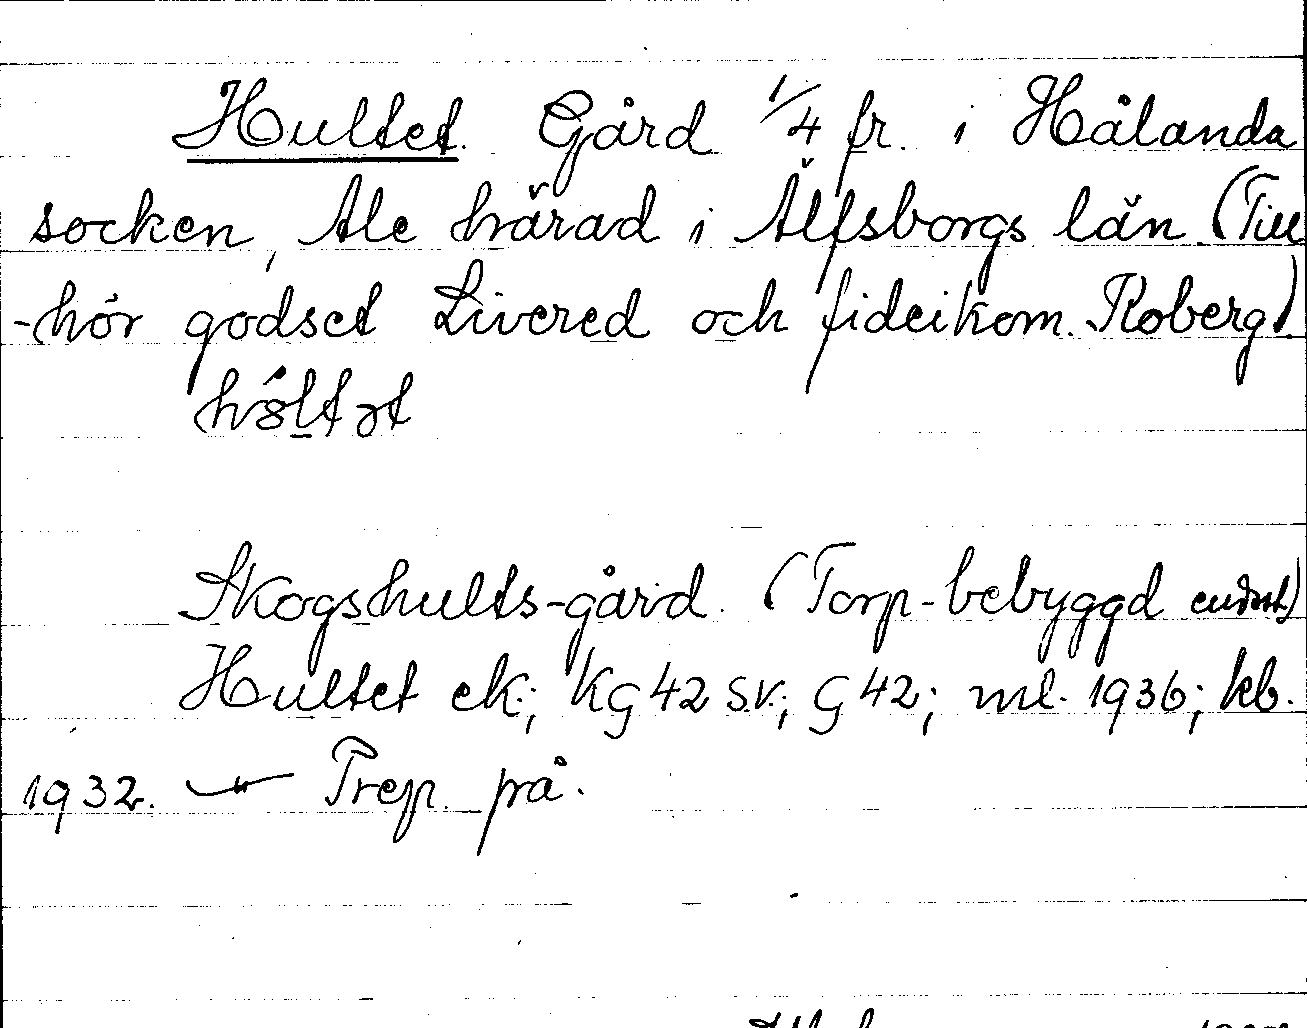 Hultet. Gård 1/4 fr. i Hålanda
socken, Ale härad i Älfsborgs län (Till
-hör godset Livered och fideikom. Koberg)
Skogshults-gård. (Torp-bebyggd endast)
Hultet ek.; KG42 SV.; G42; ml. 1936; kb.
1932. Prep. på.